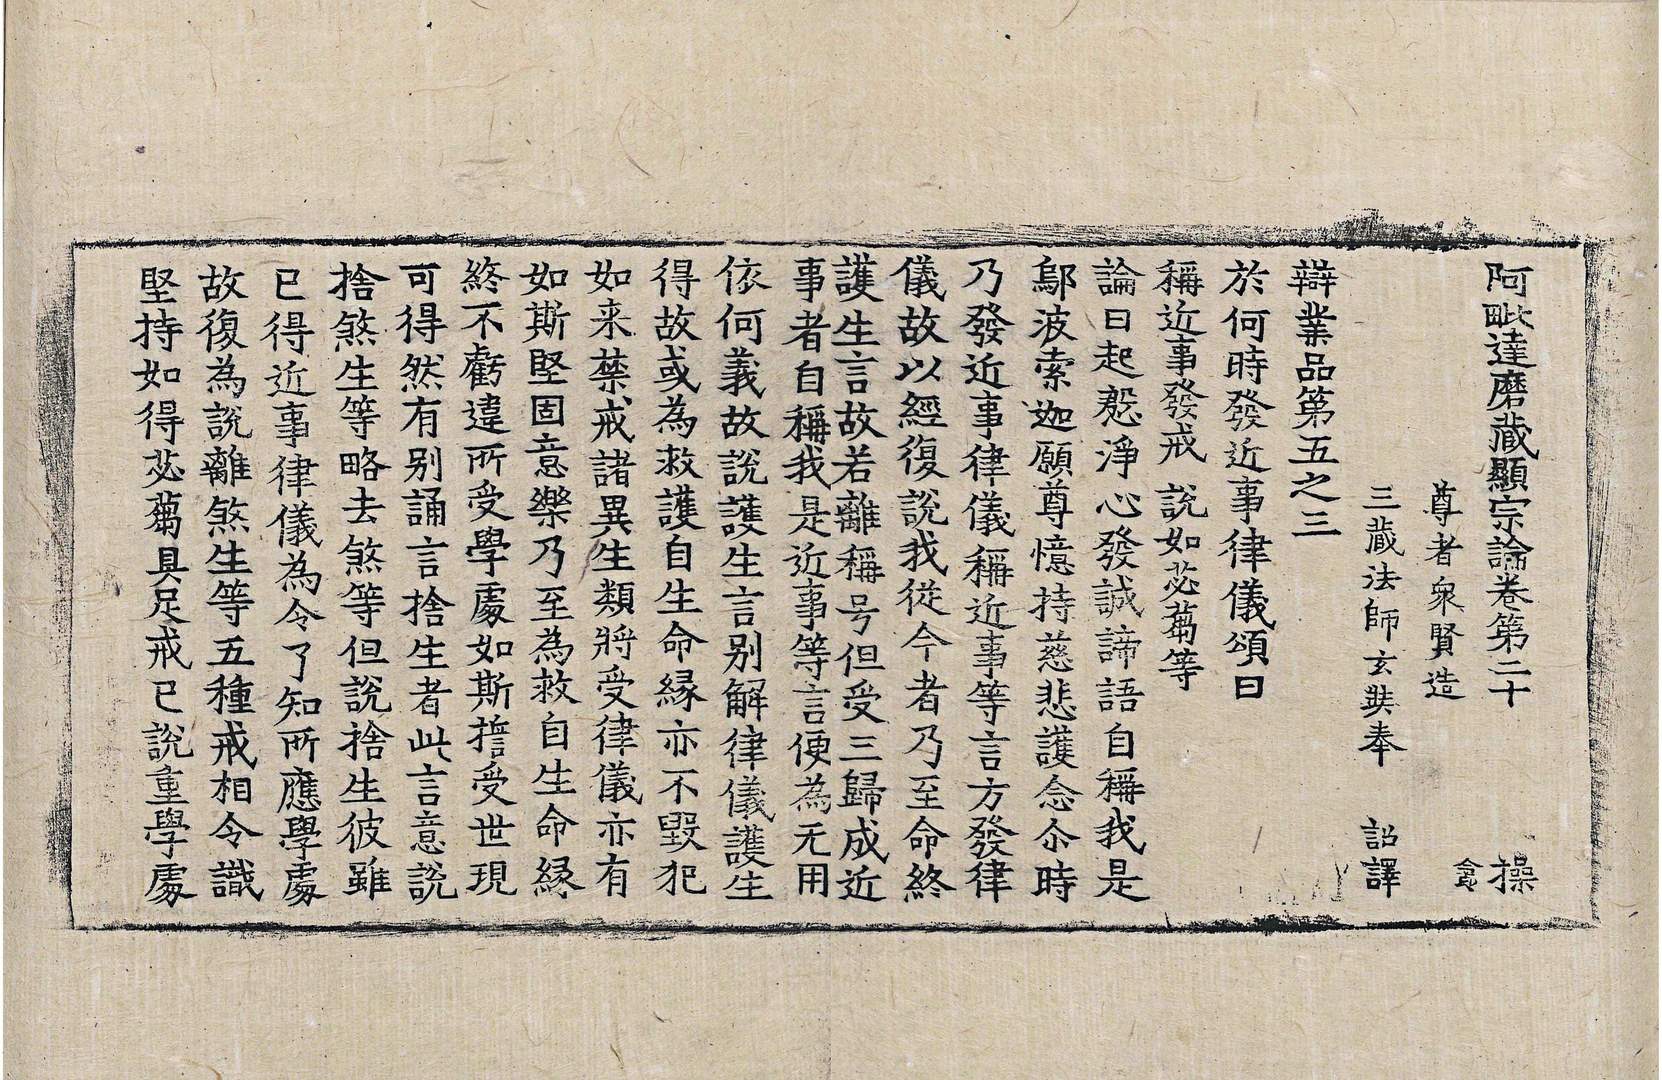 阿毗達磨藏顯宗論卷第二十 操
尊者衆賢造
三藏法師玄奘奉 詔譯
辯業品第五之三
於何時發近事律儀頌曰
稱近事發戒 說如苾蒭等
論曰起慇淨心發誠諦語自稱我是
鄔波索迦願尊憶持慈悲護念尒時
乃發近事律儀稱近事等言方發律
儀故以經復說我從今者乃至命終
護生言故若離稱号但受三歸成近
事者自稱我是近事等言便為无用
依何義故說護生言别解律儀護生
得故或為救護自生命緣亦不毀犯
如来禁戒諸異生類將受律儀亦有
如斯堅固意樂乃至為救自生命緣
終不虧違所受學處如斯擔受世現
可得然有别誦言捨生者此言意說
捨煞生等略去煞等但說捨生彼雖
已得近事律儀為令了知所應學處
故復為說離煞生等五種戒相令識
堅持如得苾蒭具足戒已說重學處